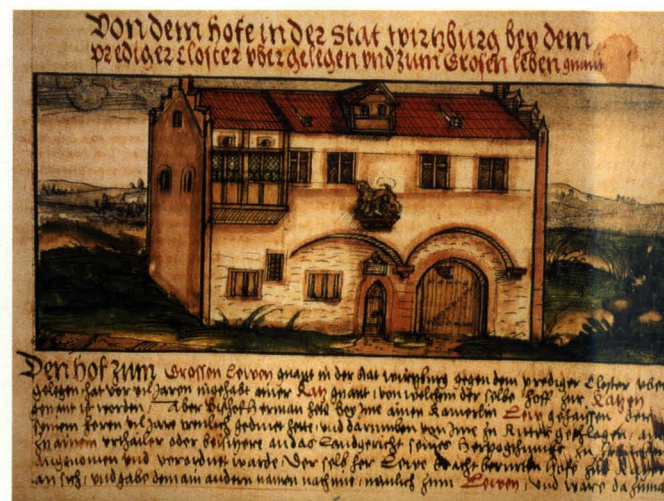 Von dem hofe in der stat wirtzburg bey dem
prediger closter vber gelegen vnd zum Grosen leben gnant
Den hof zum Grossen Lewen gnant in der stat wirtzburg gegen dem prediger Closter vber
gelegen, hat vor vil Jaren ingehabt ainer Katz gnant, von welchem der selbe hoff zur Katzen
genant ist worden, Aber Bischof Herman het bey Ime ainen Kamerlin Lew gehaissen, der
seinem heren vil Jare gedinet hette, vnd darumben von Ime zu Ritter geschlagen,
zu ainem vrthailer oder beisitzere an das Landgericht seines Herzogthumbs zu
angenomen vnd verordnet warde, Der selb her Lewe bracht hofe zur
an sich, vnd gabe dem ain andern namen nach ime, nemlich zum Lewen, vnd ware